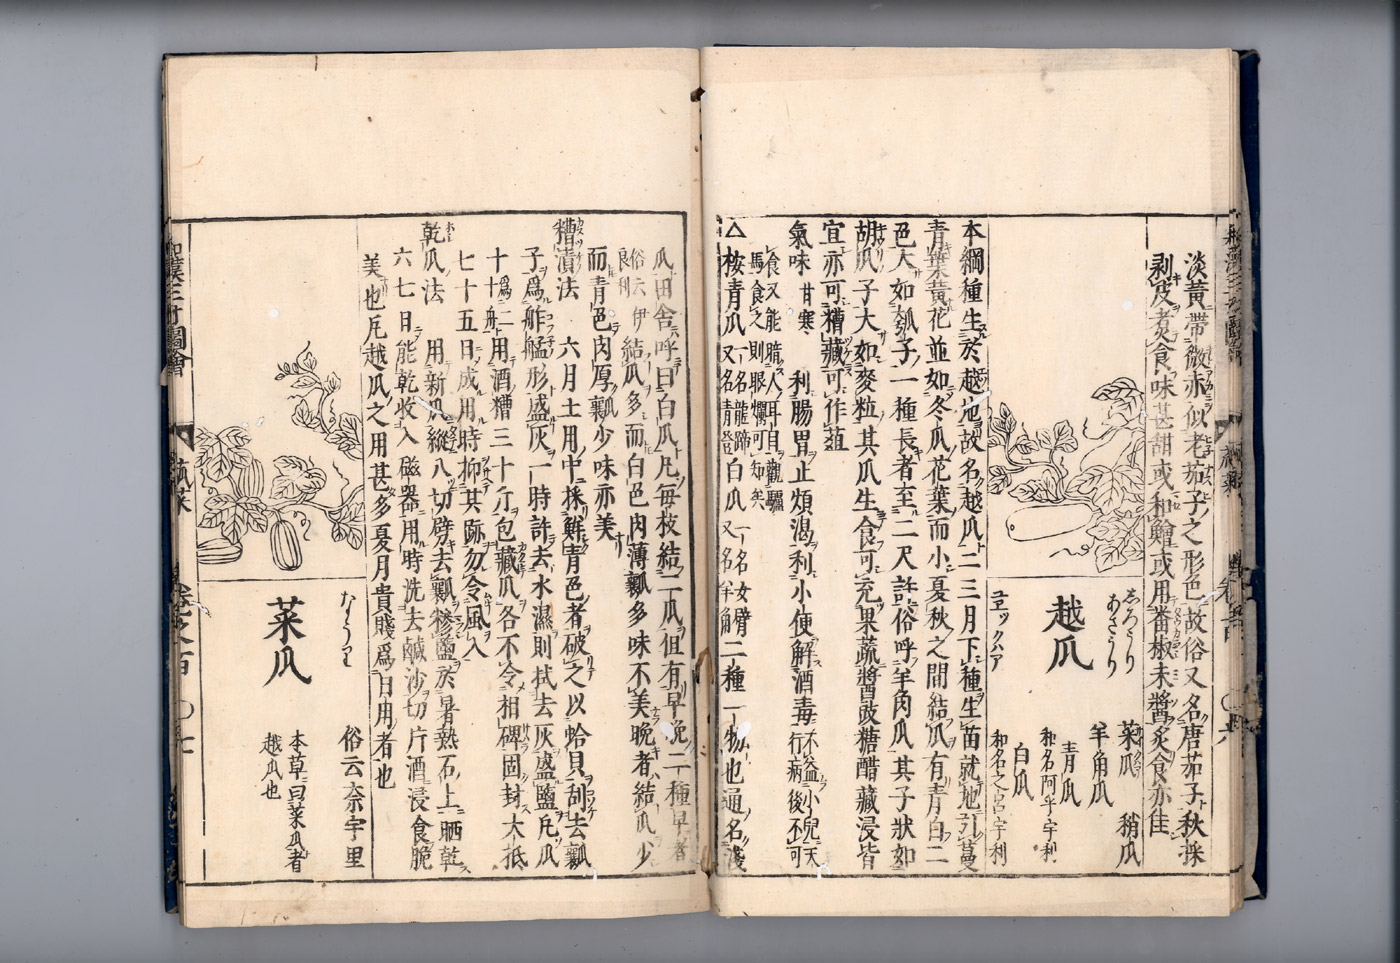 淡黄帶微赤似老茄子之形色故俗又名唐茄子秋採
剥皮煮食味甚甜或和鱠或用番椒未醬炙食亦佳
越瓜
しろうり
あさうり
ヱツクハア
菜瓜 稍瓜
羊角瓜
青瓜
和名阿乎宇利
白瓜
和名之呂宇利
本綱種生於越地故名越瓜二三月下種生苗就地引蔓
青葉黄花並如冬瓜花葉而小夏秋之間結瓜有青白二
色大如瓠子一種長者至二尺許俗呼羊角瓜其子狀如
胡瓜子大如麥粒其瓜生食可充果蔬醬豉糖醋藏浸皆
宜亦可糟藏可作葅
氣味 甘寒 利腸胃止煩渴利小便解酒毒 不益小兒天行病後不可
食又能暗人耳目觀驢
馬食之則眼爛可知矣
△桉青瓜 又名龍蹄一名青登 白瓜 一名女臂又名羊角 二種一物也通名淺
瓜田舎呼曰白瓜凡毎枝結二瓜但有早晩二種早者
俗云伊良利 結瓜多而白色肉薄瓤多味不美晩者結瓜少
而青色肉厚瓤少味亦美
糟漬法 六月土用中採鮮青色者破之以蛤貝刮去瓤
子爲舴艋形盛灰一時許去水濕則拭去灰盛鹽凡瓜
十 爲十舟 二用酒糟三十斤包藏瓜各不令相碑固封大抵
七十五日成用時抑其跡勿令風入
乾瓜法 用新瓜縱八切劈去瓤糝鹽於暑熱石上晒乾
六七日能乾收入磁器用時洗去鹹沙切片酒浸食脆
美也凡越瓜之用甚多夏月貴賤爲日用者也
菜瓜
なうり
俗云奈宇里
本草曰菜瓜者
越瓜也
和漢三才圖會
蓏菜
卷之百
〇七